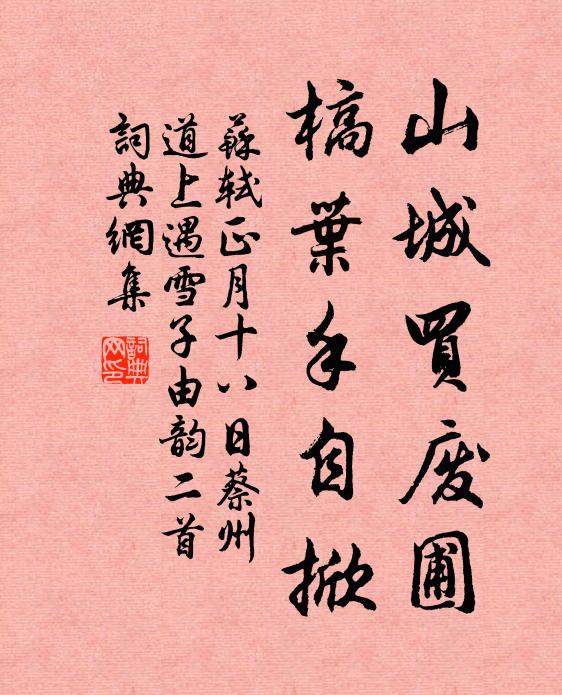 山城買廢圃
槁葉手自掀
蘇軾正月十八日蔡州
道上遇雪子由韵二首
詞典網集
詞典
网印